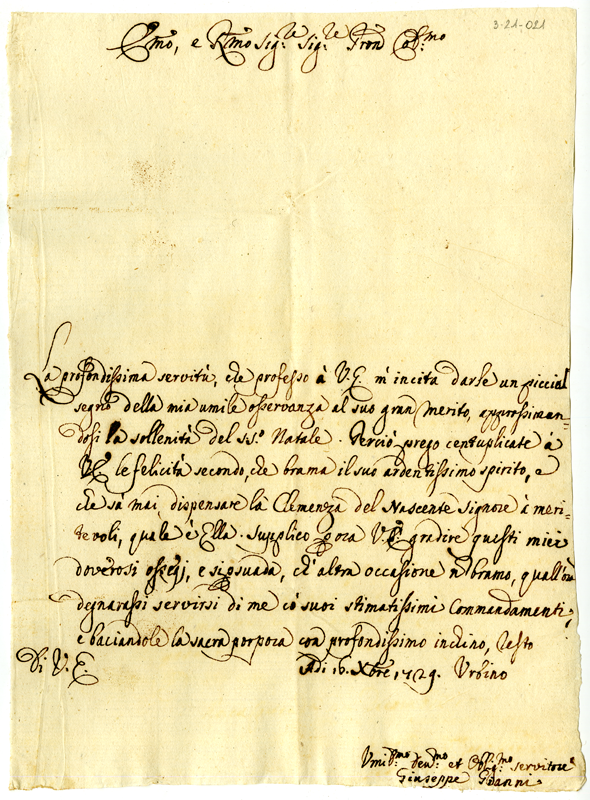 3-21-021
Emo, e Rmo Sig.re Sig.re Pron Col.mo
La profondissima servitù, che professo à V.E. m'incita darle un picciol
segno della mia umile osservanza al suo gran merito, approssiman-
dosi la sollenità del SS.º Natale. Perciò prego centuplicate à
V.E. le felicità secondo, che brama il suo ardentissimo spirito, e
che sà mai dispensare la Clemenza del Nascente Signore à meri-
tevoli, quale è Ella. Supplico poza V.E. gradire questi miei
doverosi ossequj, e si psuada, ch'altra occasione n bramo, quall'ora
degnarassi servirsi di me có suoi stimatissimi Commandamenti,
e baciandole la sacra porpora con profondissimo inclino, resto
Di V.E. Adi 16. Xbre, 1729. Urbino
Umi.mo dev.mo et Obl.mo servitore
Giuseppe